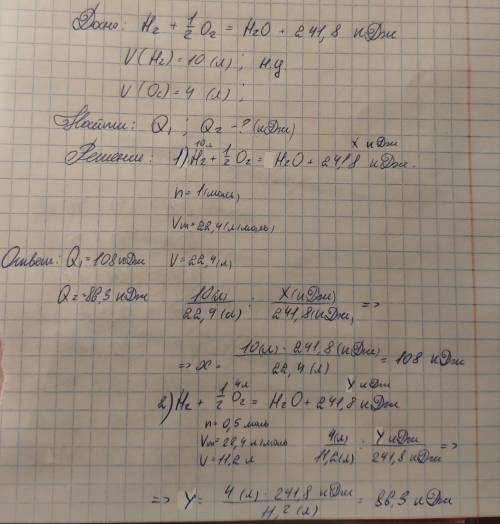 Дано: H₂ + 1/2 O₂ = H₂O + 241,8 кДж
V(H₂) = 10 (л) ; н.у.
V(O₂) = 4 (л) ;
Найти: Q₁ ; Q₂ - ? (кДж)
10 л X кДж
Решение: 1) H₂ + 1/2 O₂ = H₂O + 241,8 кДж.
n = 1 (моль)
Vm = 22,4 (л/моль)
Ответ: Q₁ = 108 кДж V = 22,4 (л)
Q = -86,3 кДж 10(л) / 22,4 (л) : X (кДж) / 241,8 (кДж) =>
=> x = 10(л) · 241,8 (кДж) / 22,4 (л) = 108 кДж
4л Y кДж
2) H₂ + 1/2 O₂ = H₂O + 241,8 кДж
n = 0,5 моль
Vm = 22,4 л/моль 4(л) / 11,2(л) : Y кДж / 241,8 кДж =>
V = 11,2 л
=> Y = 4 (л) · 241,8 кДж / 11,2 (л) = 86,3 кДж